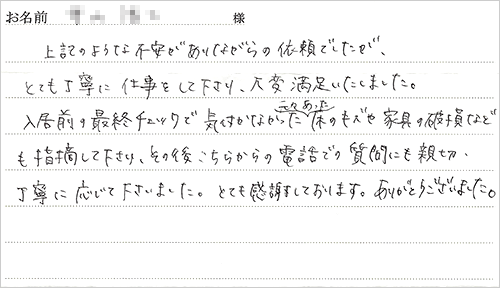 お名前 様
上記のような不安がありながらの依頼でしたが、
とても丁寧に仕事をして下さり、大変満足いたしました。
元々あった
入居前の最終チェックで気付かなかった床のキズや家具の破損なども
も指摘して下さり、その後こちらからの電話での質問にも親切、
丁寧に応じて下さいました。とても感謝しております。ありがとうございました。